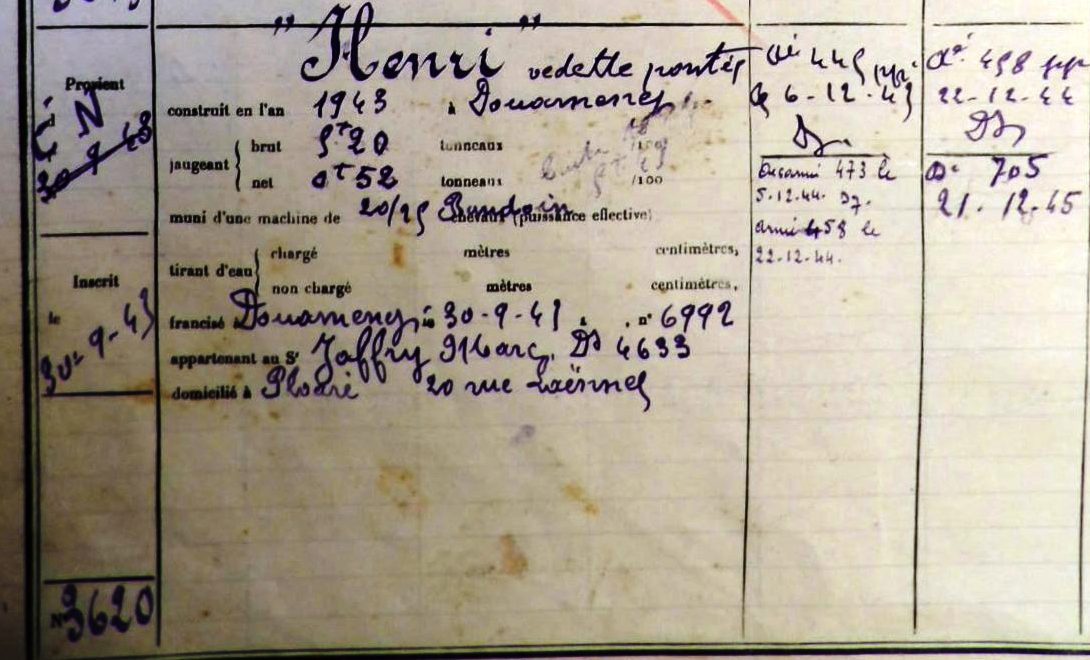 Provient
C N
30-9-43
Inscrit
le
30-9-43
N° 3620
"Henri" vedette pontée
construit en l'an 1943 à Douarnenez
jaugeant { brut 5T 20 tonneaux /100
net 0T 52 tonneaux /100
muni d'une machine de 20/25 Baudoin chevaux (puissance effective)
tirant d'eau { chargé mètres centimètres,
non chargé mètres centimètres,
francisé à Douarnenez le 30-9-43, n° 6992
appartenant au Sr Joffry Marc, Dz 4633
domicilié à Ploaré 20 rue Laënnec
445
le 6-12-43
Désarmé 473 le
5.12.44. Dz.
armé 458 le
22-12-44.
458
22-12-44
Dz
705
21.12.45